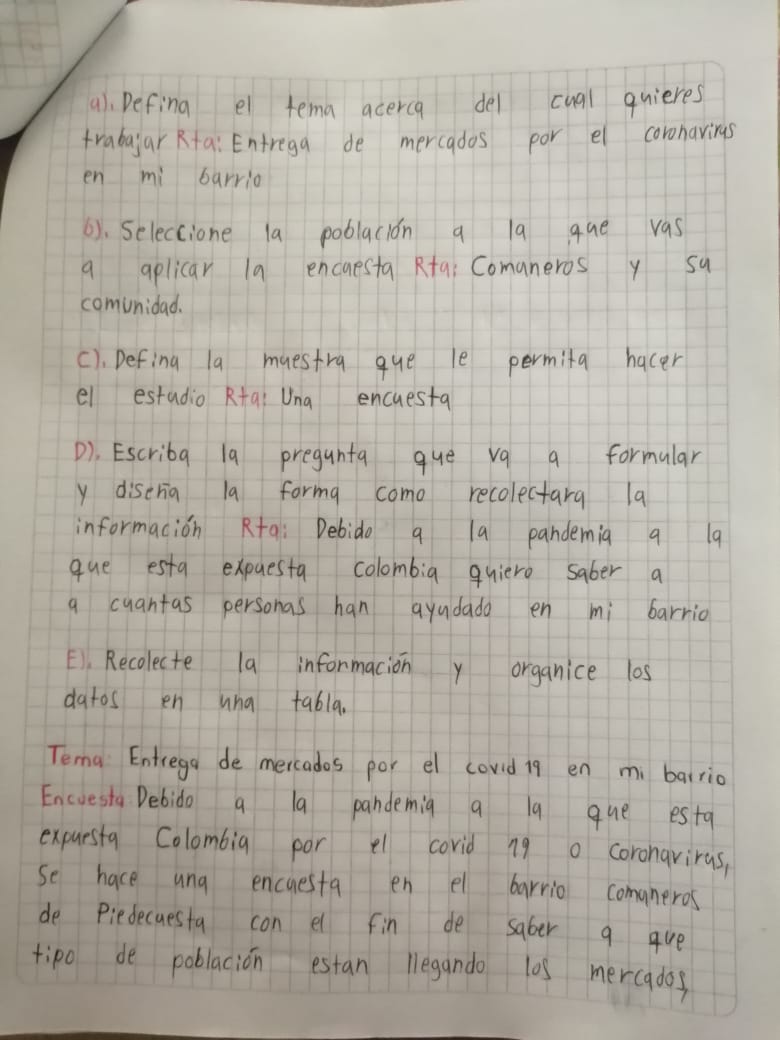 a). Defina el tema acerca del cual quieres
trabajar Rta: Entrega de mercados por el coronavirus
en mi barrio
b). Seleccione la población a la que vas
a aplicar la encuesta Rta: Comuneros y su
comunidad.
C). Defina la muestra que le permita hacer
el estudio Rta: Una encuesta
D). Escriba la pregunta que va a formular
y diseña la forma como recolectara la
información Rta: Debido a la pandemia a la
que esta expuesta colombia quiero saber a
a cuantas personas han ayudado en mi barrio
E). Recolecte la información y organice los
datos en una tabla.
Tema: Entrega de mercados por el covid 19 en mi barrio
Encuesta: Debido a la pandemia a la que esta
expuesta Colombia por el covid 19 o coronavirus,
Se hace una encuesta en el barrio comuneros
de Piedecuesta con el fin de saber a que
tipo de población estan llegando los mercados,